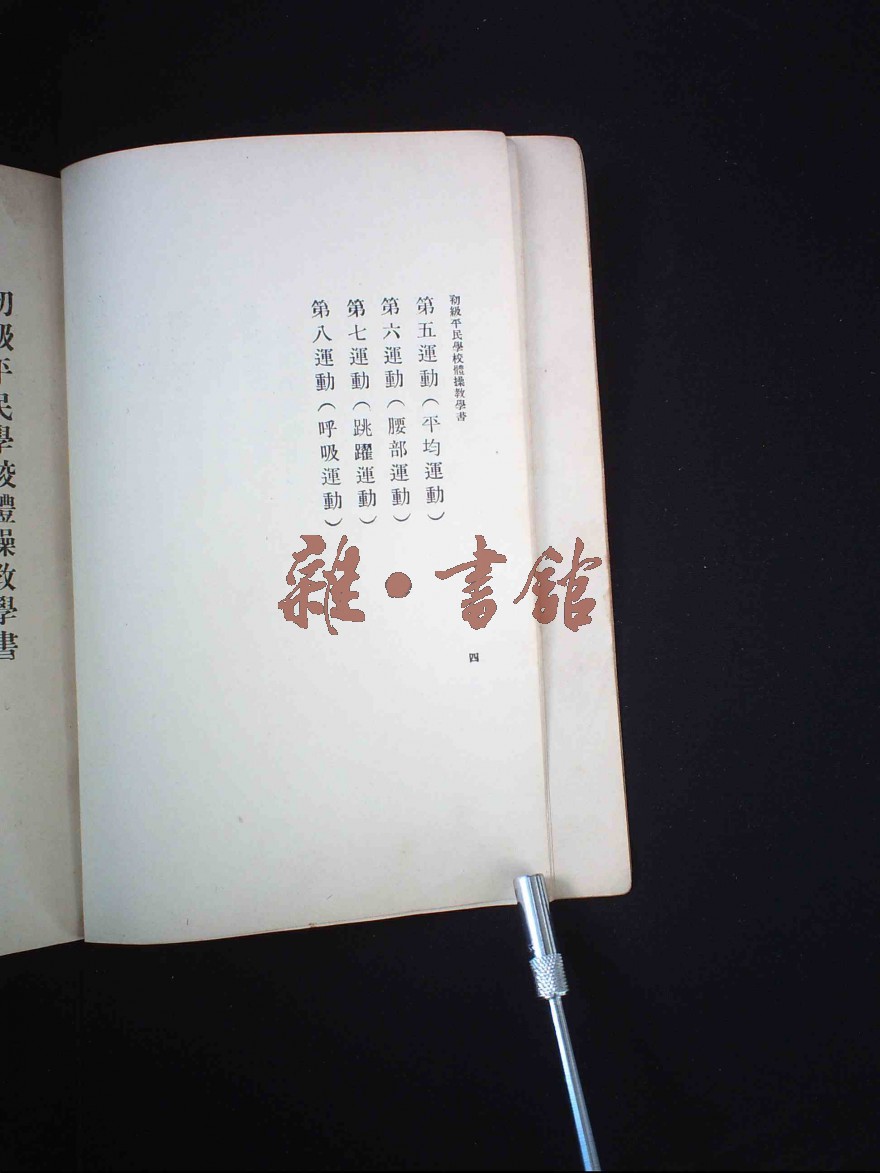 初級平民學校體操教學書
第五運動(平均運動)
第六運動(腰部運動)
第七運動(跳躍運動)
第八運動(呼吸運動)
四
雜•書館
初級平民學校體操教學書